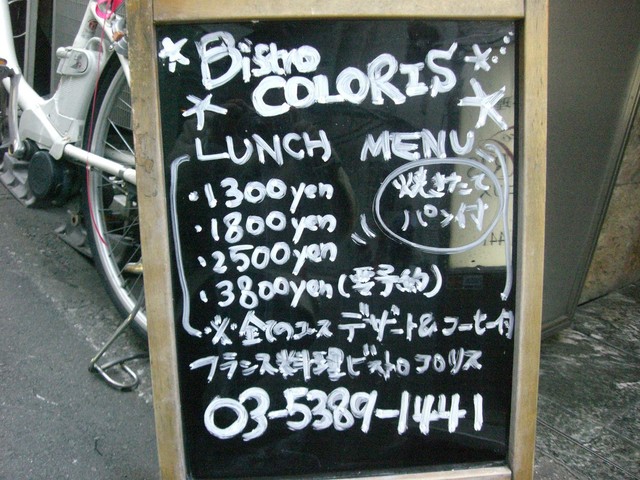 Bistro
COLORIS
LUNCH MENU
・1300yen
・1800yen
・2500yen
・3800yen(要予約)
焼きたて
パン付
※全てのコース デザート&コーヒー付
フランス料理ビストロ コロリス
03-5389-1441